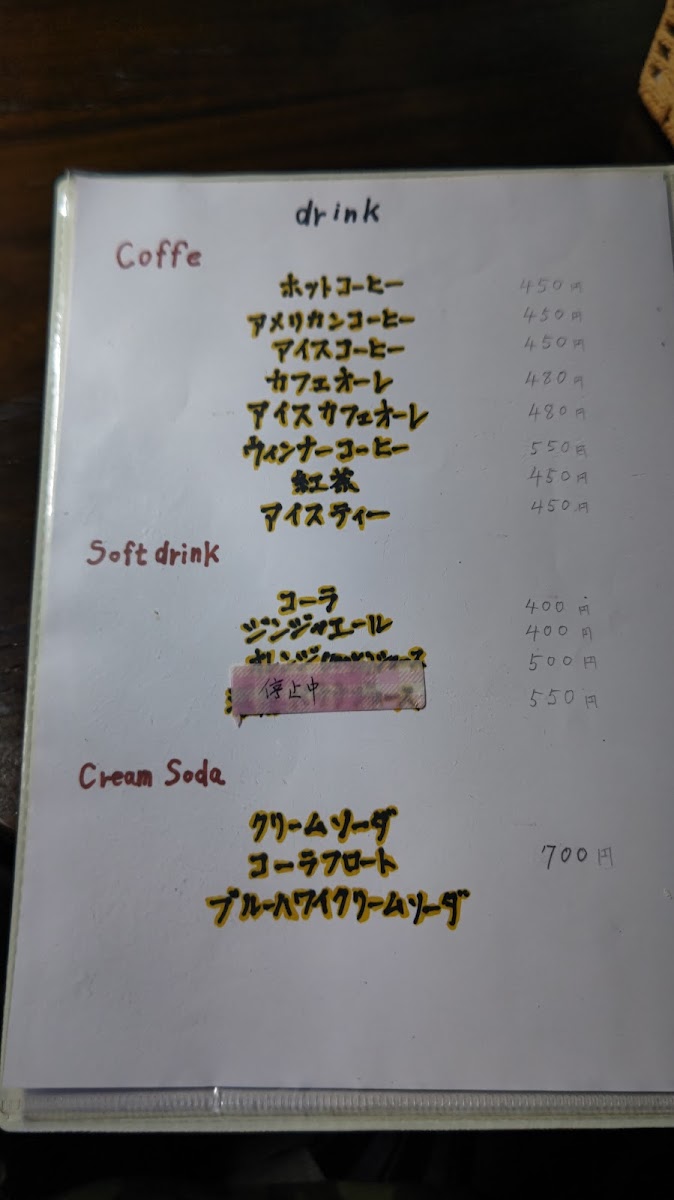 drink
Coffe
ホットコーヒー 450円
アメリカンコーヒー 450円
アイスコーヒー 450円
カフェオーレ 480円
アイスカフェオーレ 480円
ウィンナーコーヒー 550円
紅茶 450円
アイスティー 450円
Soft drink
コーラ 400円
ジンジャエール 400円
オレンジ ジュース 500円
停止中 550円
Cream Soda
クリームソーダ
コーラフロート 700円
ブルーハワイクリームソーダ